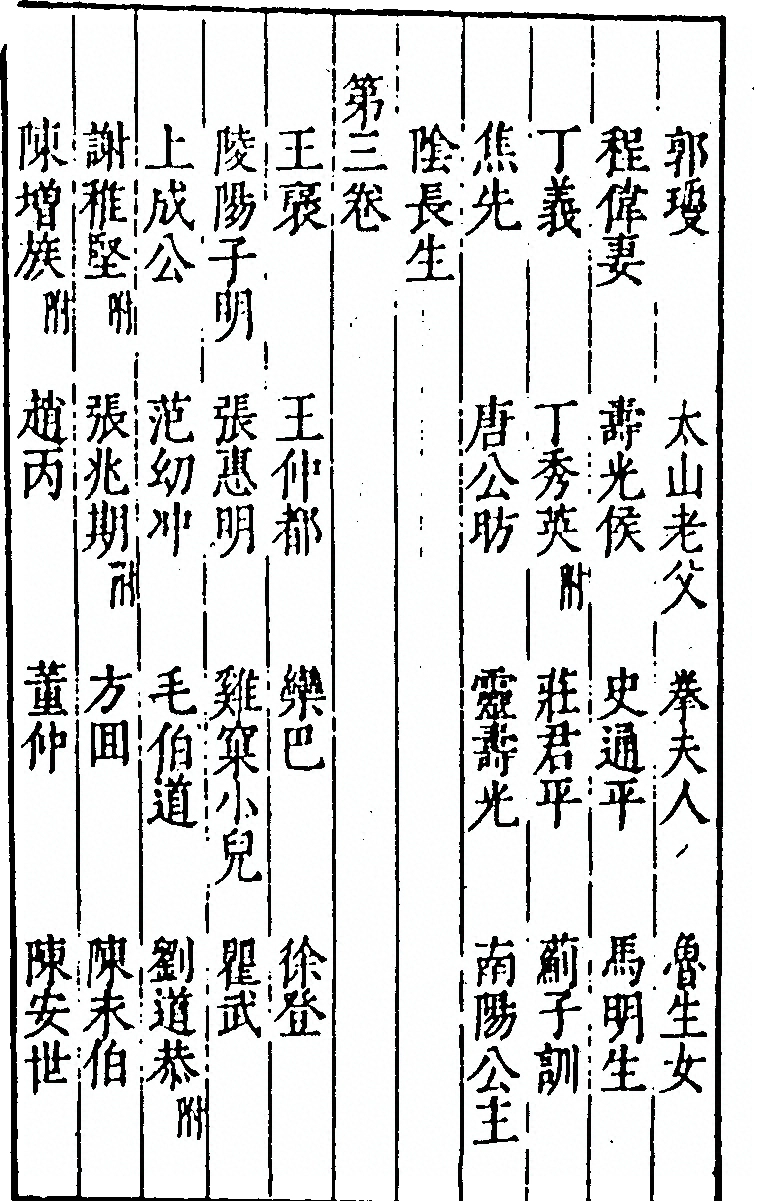 郭瓊 太山老父 拳夫人 魯生女
程偉妻 壽光侯 史通平 馬明生
丁義 丁秀英附 莊君平 薊子訓
焦先 唐公昉 靈壽光 南陽公主
陰長生
第三卷
王褒 王仲都 欒巴 徐登
陵陽子明 張惠明 雞窠小兒 瞿武
上成公 范幼冲 毛伯道 劉道恭附
謝稚堅附 張兆期附 方回 陳永伯
陳增族附 趙丙 董仲 陳安世